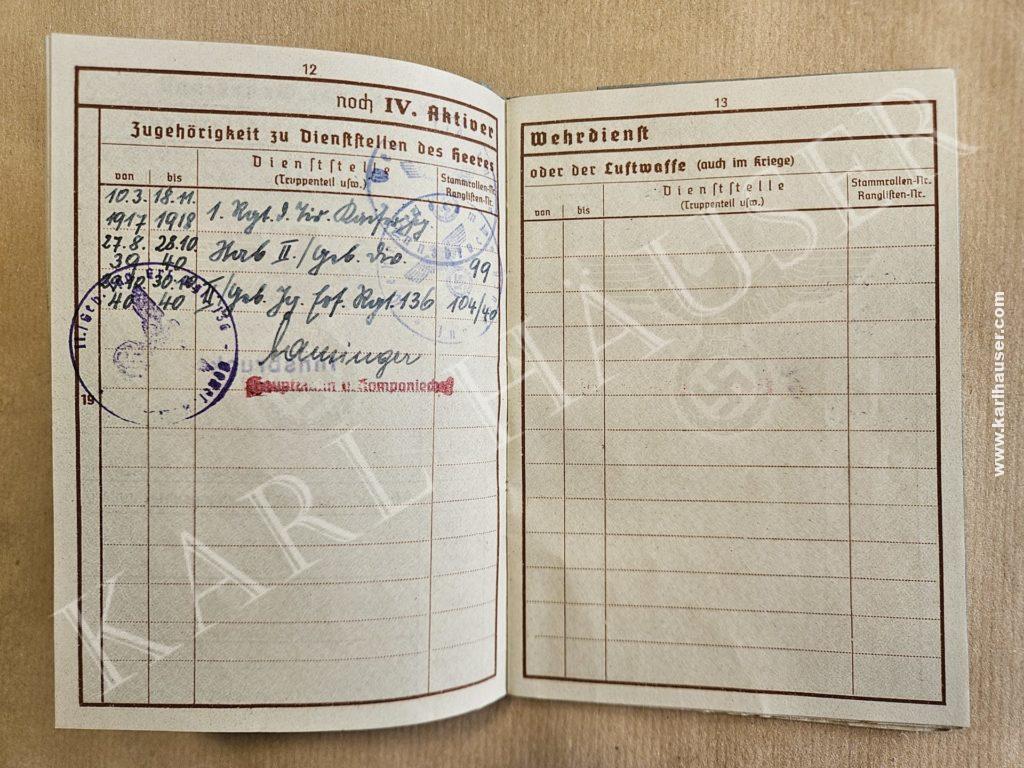 12
noch IV. Aktiver
Zugehörigkeit zu Dienststellen des Heeres
von bis Dienststelle (Truppenteil usw.) Stammrollen-Nr. Ranglisten-Nr.
10.3. 18.11.
1917 1918 1. Rgt. d. Tir.
27.8. 28.10.
39 40 Stab II./Geb. Div. 99
30.10
40 40 II/Geb. Jg. Ers. Rgt. 136 104/40
Innsbruck
Hauptmann u. Kompaniechef
19
13
Wehrdienst
oder der Luftwaffe (auch im Kriege)
von bis Dienststelle (Truppenteil usw.) Stammrollen-Nr. Ranglisten-Nr.
KARL HAUSER
www.karlhauser.com